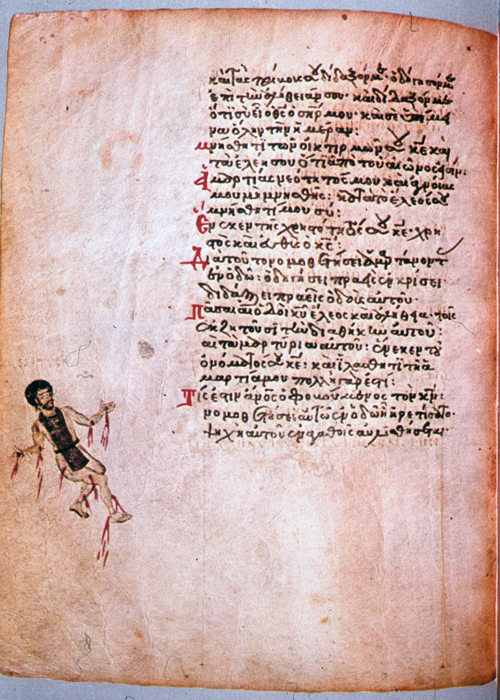 καὶ τὰς τρίβους σου δίδαξόν με· ὁδήγησόν με
ἐπὶ τὴν ἀλήθειάν σου· καὶ δίδαξόν με
ὅτι σὺ εἶ ὁ θεὸς ὁ σηρ μου· καὶ σὲ ὑπέμει
να ὅλην τὴν ἡμέραν:
μνήσθητι τῶν οἰκτιρμῶν σου κε καὶ
τὰ ἐλέη σου ὅτι ἀπὸ τοῦ αἰῶνος εἰσιν:
Ἁμαρτίας νεότητός μου καὶ ἀγνοίας
μου μὴ μνησθῇς: κατὰ τὸ ἔλεός σου
μνήσθητί μου σύ:
Ἕνεκεν τῆς χρηστότητός σου κε: χρη
στὸς καὶ εὐθὴς ὁ κς:
Διὰ τοῦτο νομοθετήσει ἁμαρτάνοντας
ἐν ὁδῷ: ὁδηγήσει πραεῖς ἐν κρίσει·
διδάξει πραεῖς ὁδοὺς αὐτοῦ·
Πᾶσαι αἱ ὁδοὶ κυ ἔλεος καὶ ἀλήθεια· τοῖς
ἐκζητοῦσι τὴν διαθήκην αὐτοῦ:
καὶ τὰ μαρτύρια αὐτοῦ: ἕνεκεν τοῦ
ὀνόματός σου κε: καὶ ἱλάσθητι τῇ ἁ
μαρτίᾳ μου πολλὴ γάρ ἐστι:
Τίς ἐστιν ἄνος ὁ φοβούμενος τὸν κν:
νομοθετήσει αὐτῷ ἐν ὁδῷ ᾗ ᾑρετίσατο·
ψυχὴ αὐτοῦ ἐν ἀγαθοῖς αὐλισθήσεται·